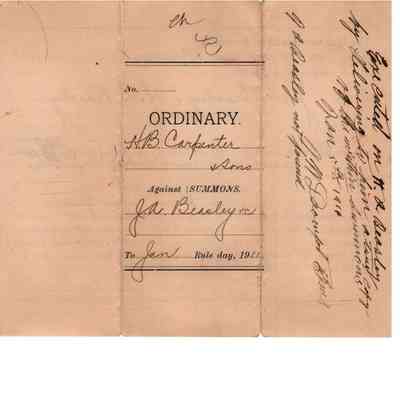 ch
No.
ORDINARY.
H.B. Carpenter
& Sons
Against } SUMMONS.
J.A. Beasley
To Jan Rule day, 191
Executed on H. A Beasley
by delivering to him a true copy
of the within summons
Jan 1910
J A Beasley not found